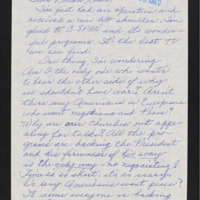 I've just had an operation and
received a new left shoulder. I'm
glued to CSPAN and its wonder-
ful programs. It's the best TV
we can find.
One thing I'm wondering
Am I the only one who wants
to hear the other side of why
we shouldn't have war? Aren't
there any Americans or Europeans
who want negotiations and Peace?
Why are our Churches not appea-
ling for talks? All the pro-
grams are backing the President
and his promises of his way
is the only way - no negotiating!
Time is so short, it is scary.
Do any Americans want peace?
It seems everyone is backing